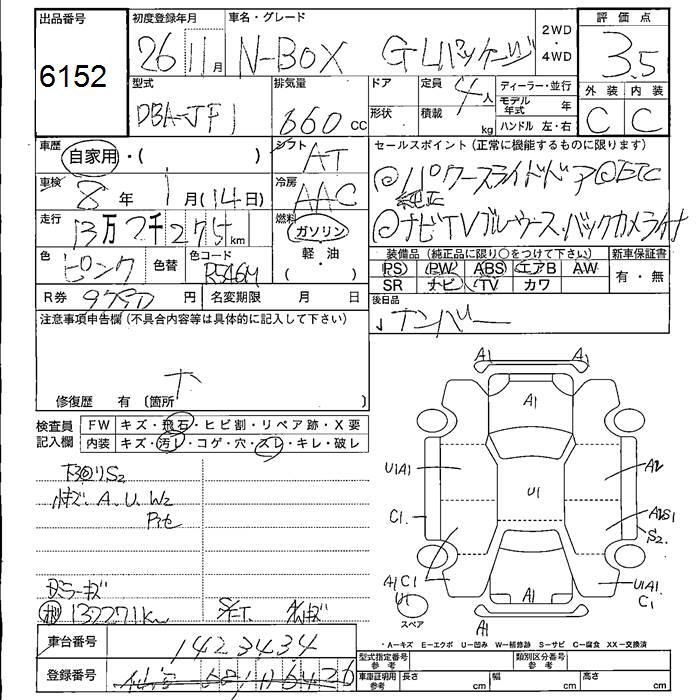 出品番号 6152
初度登録年月 26 11月
車名・グレード N-BOX GLパッケージ
2WD・4WD
評価点 3.5
型式 DBA-JF1
排気量 660 cc
ドア
形状
定員 4人
積載 kg
ディーラー・並行
モデル年式 年
ハンドル 左・右
外装 C 内装 C
車歴 自家用・( )
シフト AT
車検 8年 1月(14日)
冷房 AAC
走行 13万2千275km
燃料 ガソリン・軽・油 ( )
色 ピンク 色替 色コード R546M
R券 9790円 名変期限 月 日
セールスポイント(正常に機能するものに限ります)
◎パワースライドドア◎ETC
純正
◎ナビTVブルーツース・バックカメラ付
装備品(純正品に限り○をつけて下さい) 新車保証書
PS PW ABS エアB AW 有・無
SR ナビ TV カワ
後日品
ナンバー
注意事項申告欄(不具合内容等は具体的に記入して下さい)
修復歴 有 〔箇所 〕
検査員記入欄 FW キズ・飛石・ヒビ割・リペア跡・X要
内装 キズ・汚レ・コゲ・穴・スレ・キレ・破レ
下回りS2
小キズ、A、U、W2
132271km
A1 A1
A1
U1A1 A2
U1
C1 A2S1
S2
A1C1 U1A1
U1 C1
スペア
A1
・A=キズ E=エクボ U=凹み W=補修跡 S=サビ C=腐食 XX=交換済
車台番号 1423434
登録番号
型式指定番号 参考 類別区分番号 参考
車庫証明用 参考 長さ cm 幅 cm 高さ cm